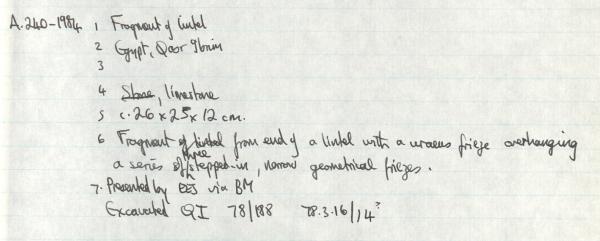 A.240-1984 1 Fragment of lintel
2 Egypt, Qasr Ibrim
3
4 Stone, limestone
5 c.26 x 25 x 12 cm.
6 Fragment of lintel from end of a lintel with a uraeus frieze overhanging
a series of three stepped-in, narrow geometrical friezes.
7. Presented by EES via BM
Excavated QI 78/188 78.3.16/14?